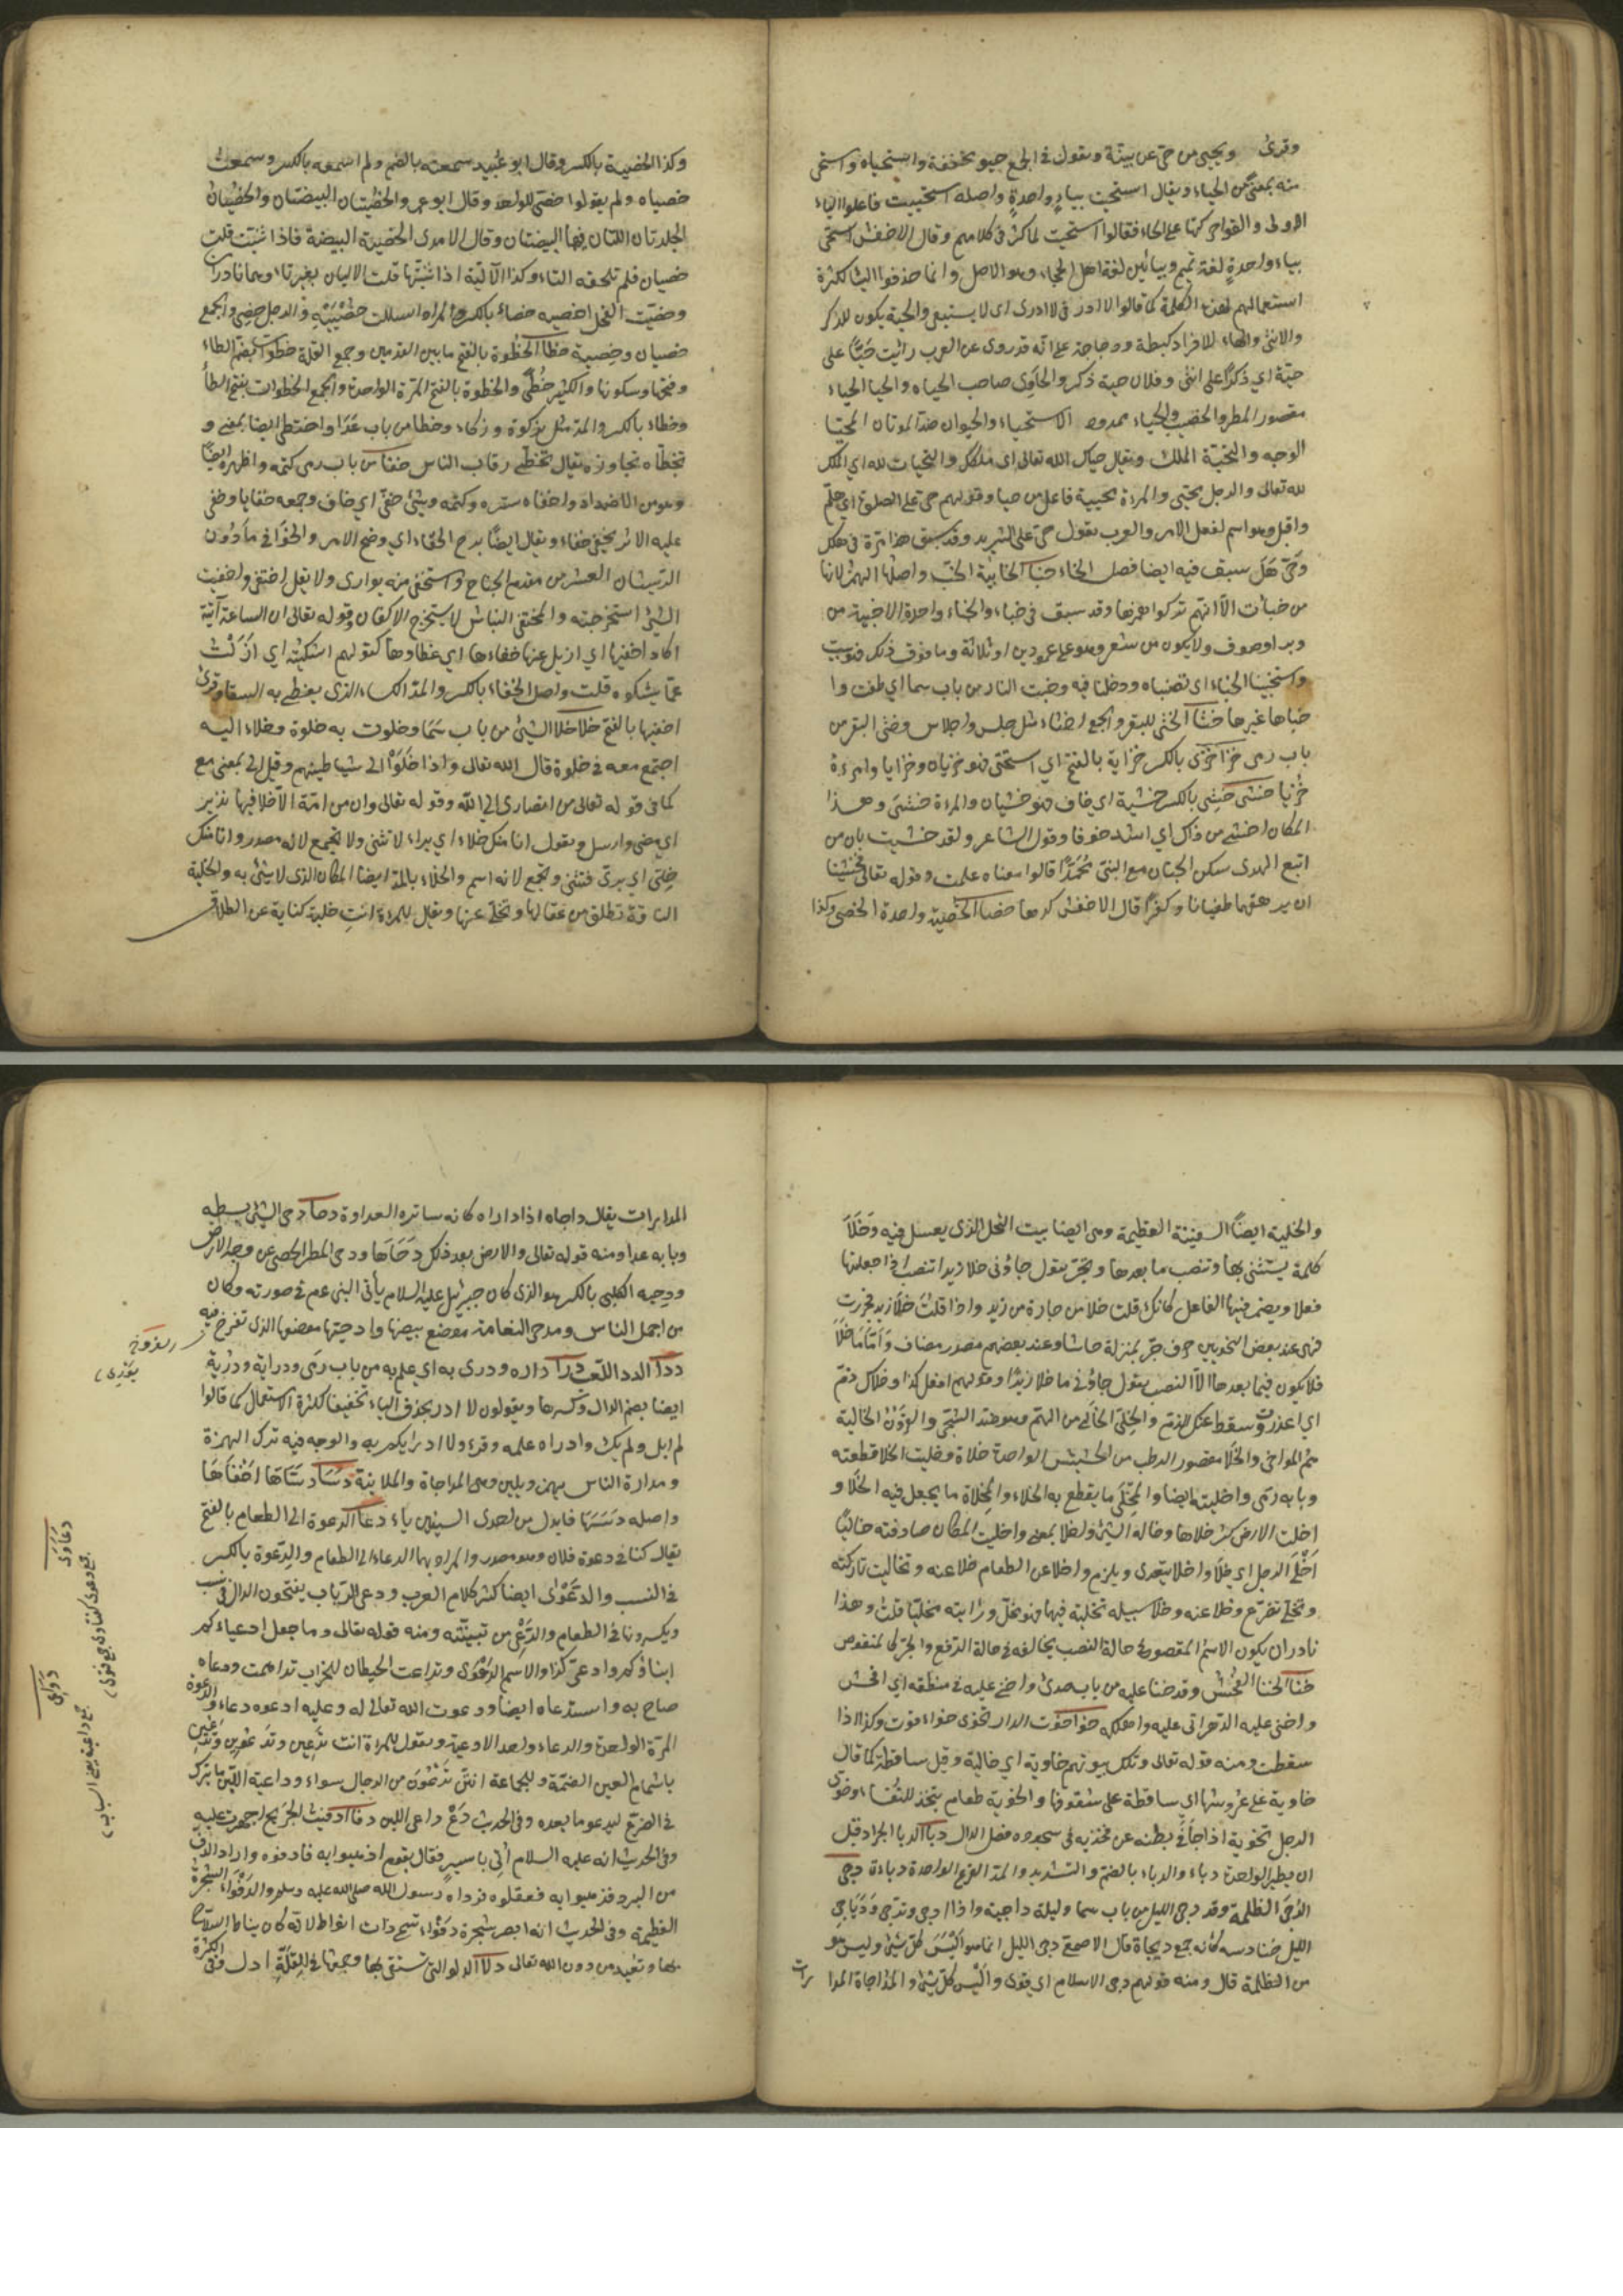 وقرئ ويحيى من حي عن بينة وتقول في الجمع حيو مخففة واستحياه واستحى
منه بمعنى من الحياء ويقال استحيت بياء واحدة واصله استحييت فاعلوا الياء
الاولى والقوا حركتها على الحاء فقالوا استحيت لما كثر في كلامهم وقال الاخفش استحى
بياء واحدة لغة تميم وبيائين لغة اهل الحجاز وهو الاصل وانما حذفوا الياء لكثرة
استعمالهم لهذه الكلمة كما قالوا لا ادر في لا ادرى اى لا يستبقى والحية يكون للذكر
والانثى والهاء للافراد كبطة ودجاجة على انه قد روى عن العرب رائيت حيّا على
حيّة اي ذكرًا على انثى وفلان حية ذكر والحاوى صاحب الحياه والحيا الحياء
مقصور المطر والخصب والحياء ممدود الاستحياء والحيوان ضد الموتان المحيا
الوجه والتحية الملك ويقال حياك الله تعالى اى ملكك والتحيات لله اي الملك
لله تعالى والرجل محيى والمراة محيية فاعل من حيا وقولهم حي على الصلوة اي هلم
واقبل وهو اسم لفعل الامر والعرب تقول حي على الثريد وقد سبق هذا مرة في هلل
وحى هل سبق فيه ايضا فصل الخاء خبا الخابية الحب واصلها الهمز لانها
من خبأت الا انهم تركوا همزها وقد سبق في خباء والخباء واحدة الاخبية من
وبر او صوف ولا يكون من شعر وهو على عمودين او ثلاثة وما فوق ذلك فهو بيت
واستخبينا الخباء اى نصبناه ودخلنا فيه وخبت النار من باب سما اي طفئت وا
خباها غيرها خثا الخثى للبقر والجمع اخثاء مثل حلس واحلاس وخثى البقر من
باب رمى خزا خزى بالكسر خزاية بالفتح اي استحى فهو خزيان وخزايا وامرءة
خزيا خشى خشى بالكسر خشية اي خاف فهو خشيان والمراة خشيى وهذا
المكان اخشى من ذاك اي اشد خوفا وقول الشاعر ولقد خشيت بان من
اتبع الهدى سكن الجنان مع النبى محمّدًا قالوا معناه علمت وقوله تعالى فخشينا
ان يرهقهما طغيانا وكفرًا قال الاخفش كرهنا خصا الخصية واحدة الخصى وكذا
وكذا الخصية بالكسر وقال ابو عبيد سمعته بالضم ولم اسمعه بالكسر وسمعت
خصياه ولم يقولوا خصى للواحد وقال ابو عمرو الخصيتان البيضتان والخصيان
الجلدتان اللتان فيهما البيضتان وقال الامدى الخصية البيضة فاذا ثنيت قلت
خصيان فلم تلحقه التاء وكذا الالية اذا ثنيتها قلت الاليان بغير تاء وهما نادران
وخصيت الفحل اخصيه خصاء بالكسر والمراد اسللت خصييه والرجل خصى والجمع
خصيان وخصية خطا الخطوة بالضم ما بين القدمين وجمع القلة خطوات بضم الطاء
وفتحها وسكونها والكثير خطى والخطوة بالفتح المرة الواحدة والجمع الخطوات بفتح الطاء
وخطاء بالكسر والمد مثل ركوة وركاء وخطا من باب عدا واختطى ايضا بمعنى و
تخطاه تجاوزه يقال تخطى رقاب الناس خفا من باب رمى كتمه واظهره ايضًا
وهو من الاضداد واخفاه ستره وكتمه وشئ خفى اي خاف وجمعه خفايا وخفى
عليه الاثر يخفى خفاء ويقال ايضًا برح الخفاء اي وضح الامر والخوافى ما دون
الريشات العشر من مقدم الجناح واستخفى منه توارى ولا تقل اختفى واختفيت
الشئ استخرجته والمختفى النباش لانه يستخرج الاكفان وقوله تعالى ان الساعة آتية
اكاد اخفيها اي ازيل عنها خفاءها اي غطاءها كقولهم اشكيته اي ازلت
عمّا يشكوه قلت واصل الخفاء بالكسر والمد الكساء الذى يغطى به السقا وقرئ
اخفيها بالفتح خلا خلا الشئ من باب سما وخلوت به خلوة وخلاء اليه
اجتمع معه في خلوة قال الله تعالى واذا خلوا الى شياطينهم وقيل الى بمعنى مع
كما في قوله تعالى من انصارى الى الله وقوله تعالى وان من امة الا خلا فيها نذير
اي مضى وارسل وتقول انا منك خلاء اي براء لا تثنى ولا تجمع لانه مصدر وانا منك
خلى اي برى فتثنى وتجمع لانه اسم والخلاء بالمد ايضا المكان الذى لا شئ به والخلية
الناقة تطلق من عقالها وتخلى عنها ويقال للمراة انت خلية كناية عن الطلاق
والخلية ايضًا السفينة العظيمة وهى ايضا بيت النحل الذى يعسل فيه وخلا
كلمة يستثنى بها وتنصب ما بعدها وتجر تقول جاؤنى خلا زيدا تنصب اذا جعلتها
فعلا وتضمر فيها الفاعل كانك قلت خلا من جاءنى من زيد واذا قلت خلا زيد فجررت
فهى عند بعض النحويين حرف جر بمنزلة حاشا وعند بعضهم مصدر مضاف وامّا ما خلا
فلا يكون فيما بعدها الا النصب تقول جاؤنى ما خلا زيدًا وقولهم افعل كذا وخلاك ذم
اي اعذرت وسقط عنك الذم والخلى الخالى من الهم وهو ضد الشجى والقرون الخالية
هم المواضى والخلا مقصور الرطب من الحشيش الواحدة خلاة وخليت الخلا قطعته
وبابه رمى واختليته ايضا والمختلى ما يقطع به الخلاء والمخلاة ما يجعل فيه الخلا و
اخلت الارض كثر خلاها وخاله الشئ واخلا بمعنى واخليت المكان صادفته خاليًا
اخلى الرجل اى خلا واخلا يتعدى ويلزم واخلا عن الطعام خلا عنه وتخاليت تاركته
وتخلى تفرغ وخلا عنه وخلا سبيله تخلية فيهما فهو مخلّ ورايته مخليّا قلت وهذا
نادر ان يكون الاسم المقصور في حالة النصب يخالفه في حالة الرفع والجر كالمنقوص
خنا الخنا الفحش وقد خنا عليه من باب صدى واخنى عليه في منطقه اي افحش
واخنى عليه الدهر اتى عليه واهلكه خوا خوت الدار تخوى خواء اقوت وكذا اذا
سقطت ومنه قوله تعالى وتلك بيوتهم خاوية اي خالية وقيل ساقطة كما قال
خاوية على عروشها اي ساقطة على سقوفها والخوية طعام يتخذ للنفساء وخوى
الرجل تخوية اذا جافى بطنه عن فخذيه في سجوده فصل الدال دبا الدبا الجراد قبل
ان يطير الواحدة دباة والدباء بالضم والتشديد والمد القرع الواحدة دباءة دجى
الدجى الظلمة وقد دجى الليل من باب سما وليلة داجية واذا ادجى وتدجى ودياجى
الليل حنادسه كانه جمع ديجاة قال الاصمعى دجى الليل انما هو البس كل شئ وليس هو
من الظلمة قال ومنه قولهم دجى الاسلام اى قوى والبس كل شئ والمداجاة المدا
رات
المدارات يقال داجاه اذا داراه كانه ساتره العداوة دحا دحى الشئ بسطه
وبابه عدا ومنه قوله تعالى والارض بعد ذلك دحاها ودحى المطر الحصى عن وجه الارض
ودحية الكلبى بالكسر هو الذى كان جبرئيل عليه السلام يأتى النبى عم في صورته وكان
من اجمل الناس ومدحى النعامة موضع بيضها وادحيتها موضعها الذى تفرخ فيه
ددا الدد اللعب درا داره ودرى به اى علم به من باب رمى ودراية ودرية
ايضا بضم الدال وكسرها ويقولون لا ادر بحذف الياء تخفيفا لكثرة الاستعمال كما قالوا
لم ابل ولم يك وادراه علمه وقرئ ولا ادرايكم به والوجه فيه ترك الهمزة
ومدارة الناس يهمز ويلين وهى المداجاة والملاينة دسا دسّاها اخفاها
واصله دسسها فابدل من احدى السينين ياء دعا الدعوة الى الطعام بالفتح
يقال كنا في دعوة فلان وهو مصدر والمراد بهما الدعاء الى الطعام والدعوة بالكسر
في النسب والدعوى ايضا كثر كلام العرب ودعى الرباب يفتحون الدال في النسب
ويكسرونها في الطعام والدعى من تبنّته ومنه قوله تعالى وما جعل ادعياءكم
ابناءكم وادعى كذا والاسم الدعوى وتداعت الحيطان للخراب تداهمت ودعاه
صاح به واستدعاه ايضا ودعوت الله تعالى له وعليه ادعوه دعاء والدعوة
المرة الواحدة والدعاء واحد الادعية وتقول للمراة انت تدعين وتدعوين وتدعين
باشمام العين الضمة وللجماعة انتن تدعون من الرجال سواء وداعية اللبن ما يترك
في الضرع ليدعو ما بعده وفى الحديث دع داعى اللبن دفا ادفيت الجريح اجهزت عليه
وفى الحديث انه عليه السلام اُتى باسير فقال لقوم اذهبوا به فادفوه واراد الدفء
من البرد فذهبوا به فقتلوه فوداه رسول الله صلى الله عليه وسلم والدفواء الشجرة
العظيمة وفى الحديث انه ابصر شجرة دفواء تسمى ذات انواط لانه كان يناط السلاح
بها وتعبد من دون الله تعالى دلا الدلو التى تستقى بها وجمعها في القلة ادل وفى الكثرة
دعاوى
جمع دعوى كفتاوى جمع فتوى
دواعى